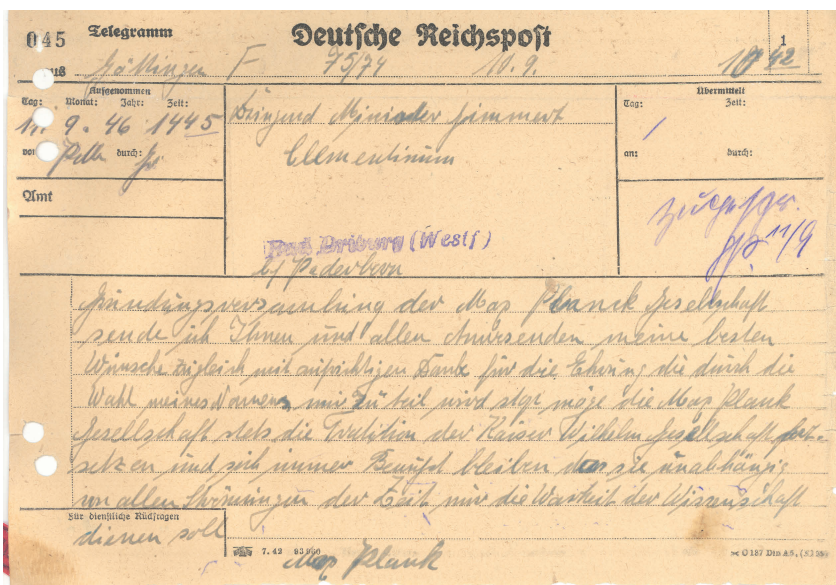 045 Telegramm Deutsche Reichspost 1
aus Göttingen F 75/74 10.9. 1042
Aufgenommen
Tag: Monat: Jahr: Zeit:
9. 46 1445
von durch:
Amt
Dringend Minister
Clementinum
Bad Driburg (Westf)
b/ Paderborn
Übermittelt
Tag: Zeit:
an: durch:
11/9
Gründungsversamlung der Max Planck Gesellschaft
sende ich Ihnen und allen Anwesenden meine besten
Wünsche zugleich mit aufrichtigen Dank für die Ehrung die durch die
Wahl meines Namens mir zu teil wird stop möge die Max Plank
Gesellschaft stets die Tradition der Kaiser Wilhelm Gesellschaft fort-
setzen und sich immer Bewust bleiben das sie unabhängig
von allen Strömungen der Zeit nur die Warheit der Wissenschaft
Für dienstliche Rückfragen
dienen soll
Max Plank
7.42
C 187 Din A5,